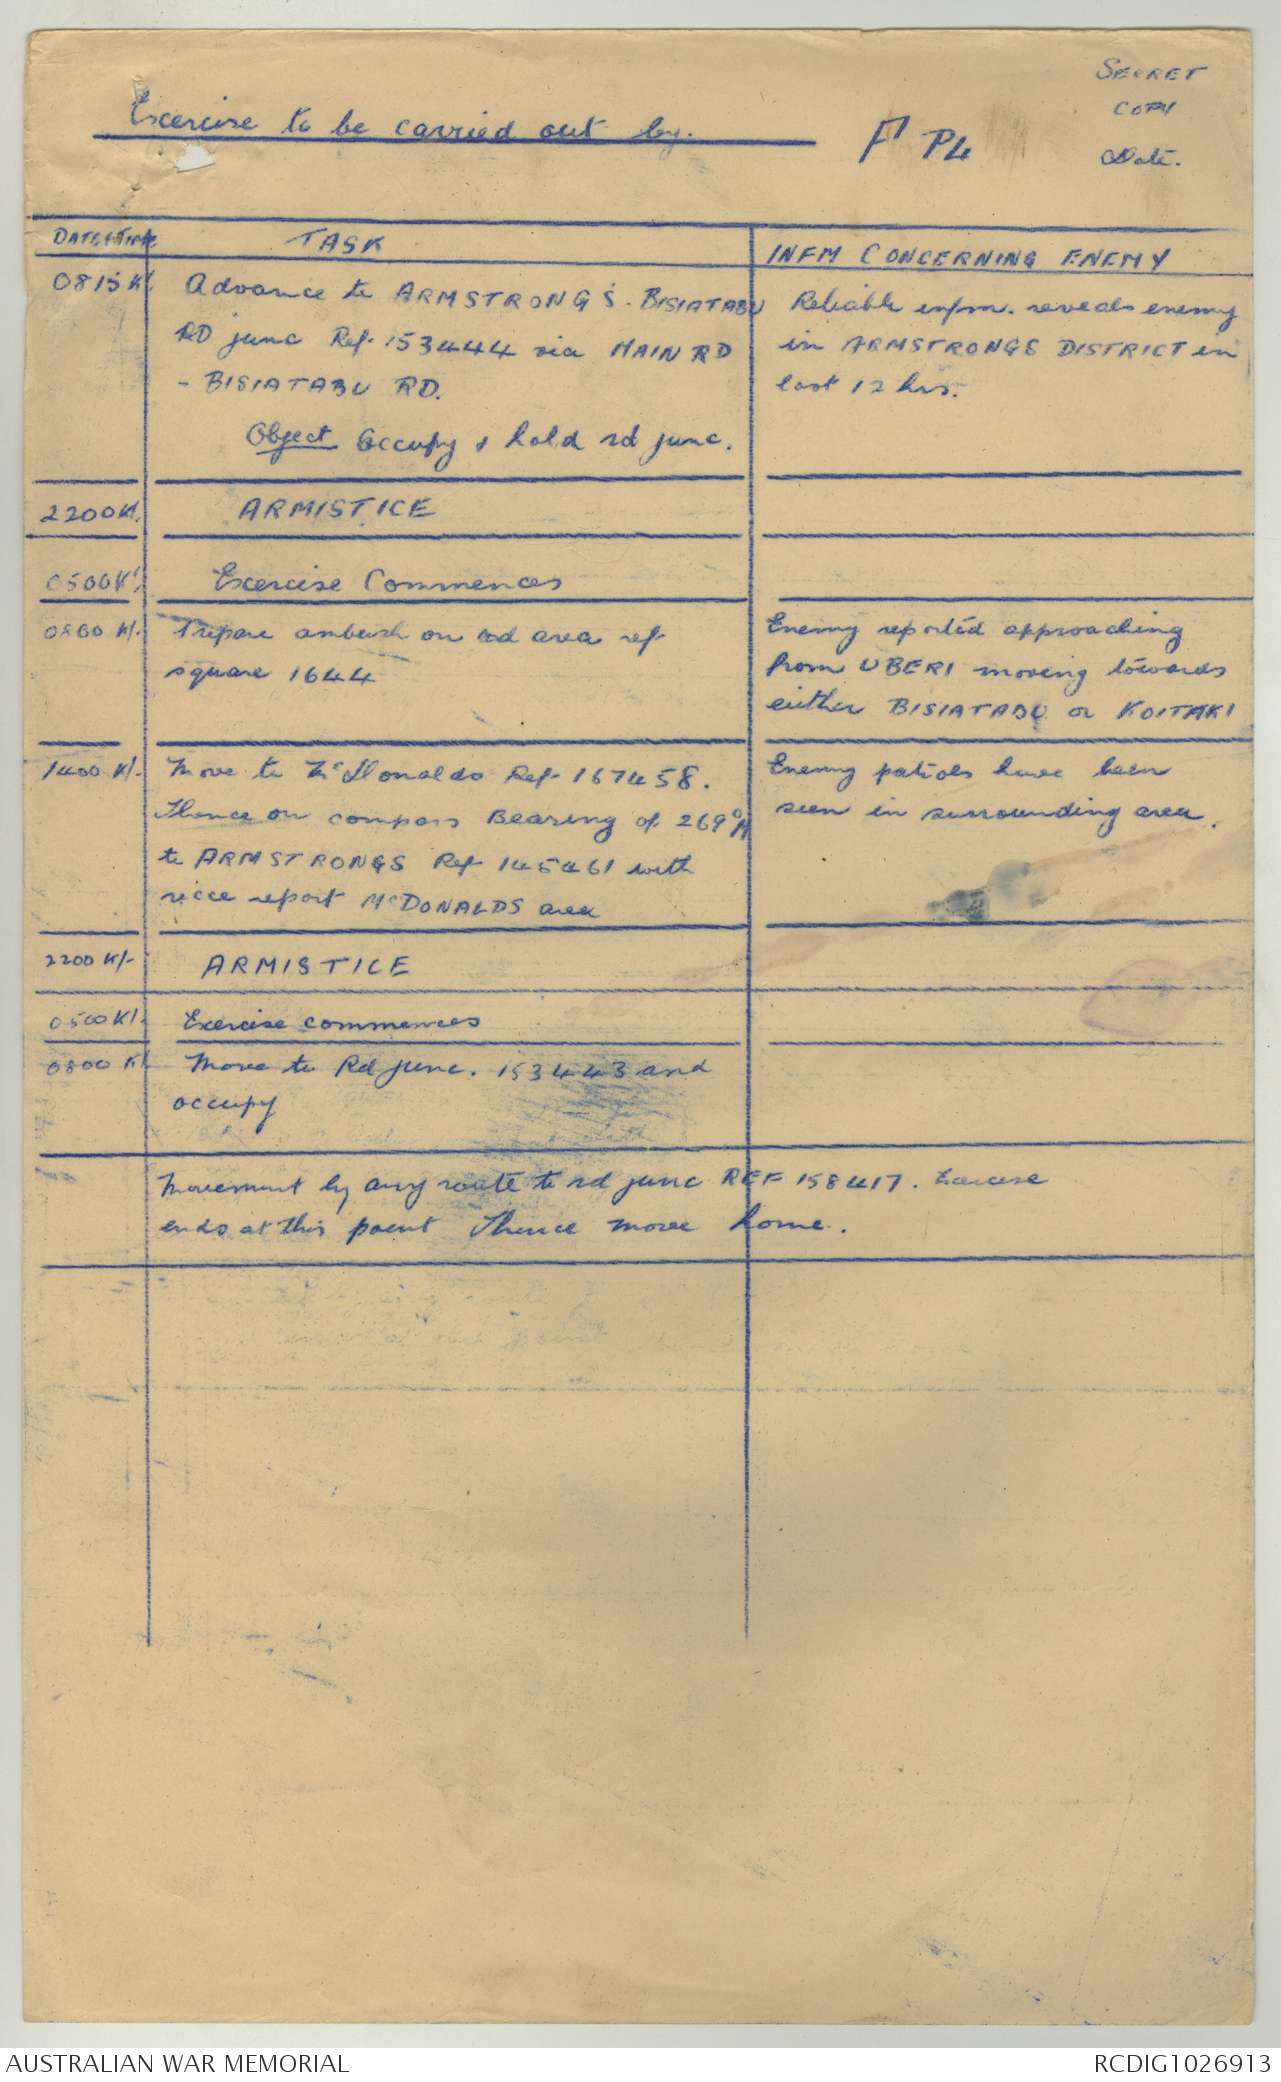 SECRET
COPY
Date.
Exercise to be carried out by.
F Pl
DATE & TIME
TASK
INFM CONCERNING ENEMY
0815 K/.
Advance to ARMSTRONG'S - BISIATABU
RD junc Ref. 153444 via MAIN RD
- BISIATABU RD.
Object Occupy & hold rd junc.
Reliable infm. reveals enemy
in ARMSTRONGS DISTRICT in
last 12 hrs.
2200 K/.
ARMISTICE
0500 K/.
Exercise Commences
0800 K/.
Prepare ambush on rd area ref
square 1644
Enemy reported approaching
from UBERI moving towards
either BISIATABU or KOITAKI
1400 K/.
Move to McDonalds Ref 167458.
Thence on compass Bearing of 269°M
to ARMSTRONGS Ref 145461 with
recce report McDONALDS area
Enemy patrols have been
seen in surrounding area.
2200 K/-
ARMISTICE
0500 K/.
Exercise commences
0800 K/
Move to Rd junc. 153443 and
occupy
Movement by any route to rd junc REF 158417. Exercise
ends at this point Thence move home.
AUSTRALIAN WAR MEMORIAL
RCDIG1026913